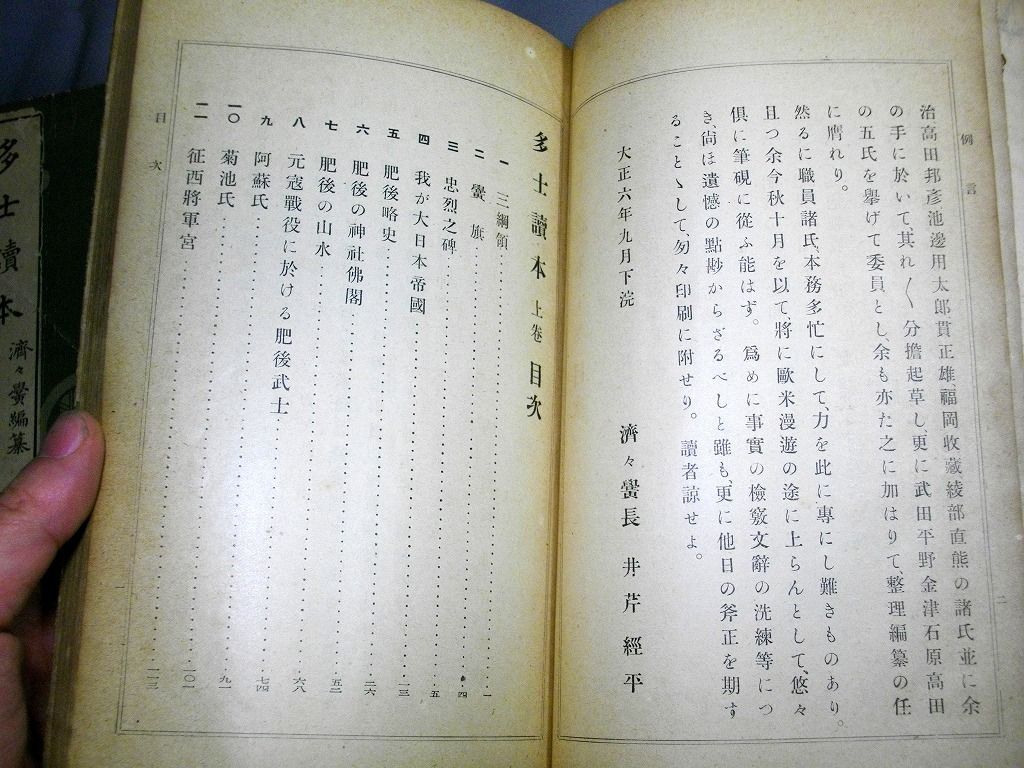 例言
二
治高田邦彦池邊用太郎貫正雄、福岡收藏綾部直熊の諸氏並に余
の手に於いて、其れ〱分擔起草し、更に武田平野金津石原高田
の五氏を擧げて委員とし、余も亦た之に加はりて、整理編纂の任
に膺れり。
然るに職員諸氏、本務多忙にして力を此に專にし難きものあり。
且つ余今秋十月を以て、將に歐米漫遊の途に上らんとして、悠々
倶に筆硯に從ふ能はず。爲めに事實の檢覈文辭の洗練等につ
き、尙ほ遺憾の點尠からざるべしと雖も、更に他日の斧正を期す
ることゝして、匆々印刷に附せり。讀者諒せよ。
大正六年九月下浣
濟々黌長 井芹經平
多士讀本 上卷 目次
一 三綱領 一
二 黌旗
三 忠烈之碑 四
四 我が大日本帝國 五
五 肥後略史 一三
六 肥後の神社佛閣 二六
七 肥後の山水 五二
八 元寇戰役に於ける肥後武士 六八
九 阿蘇氏 七四
一〇 菊池氏 九一
一一 征西將軍宮 一〇一
一一三
目次
一
多士讀本
濟々黌編纂